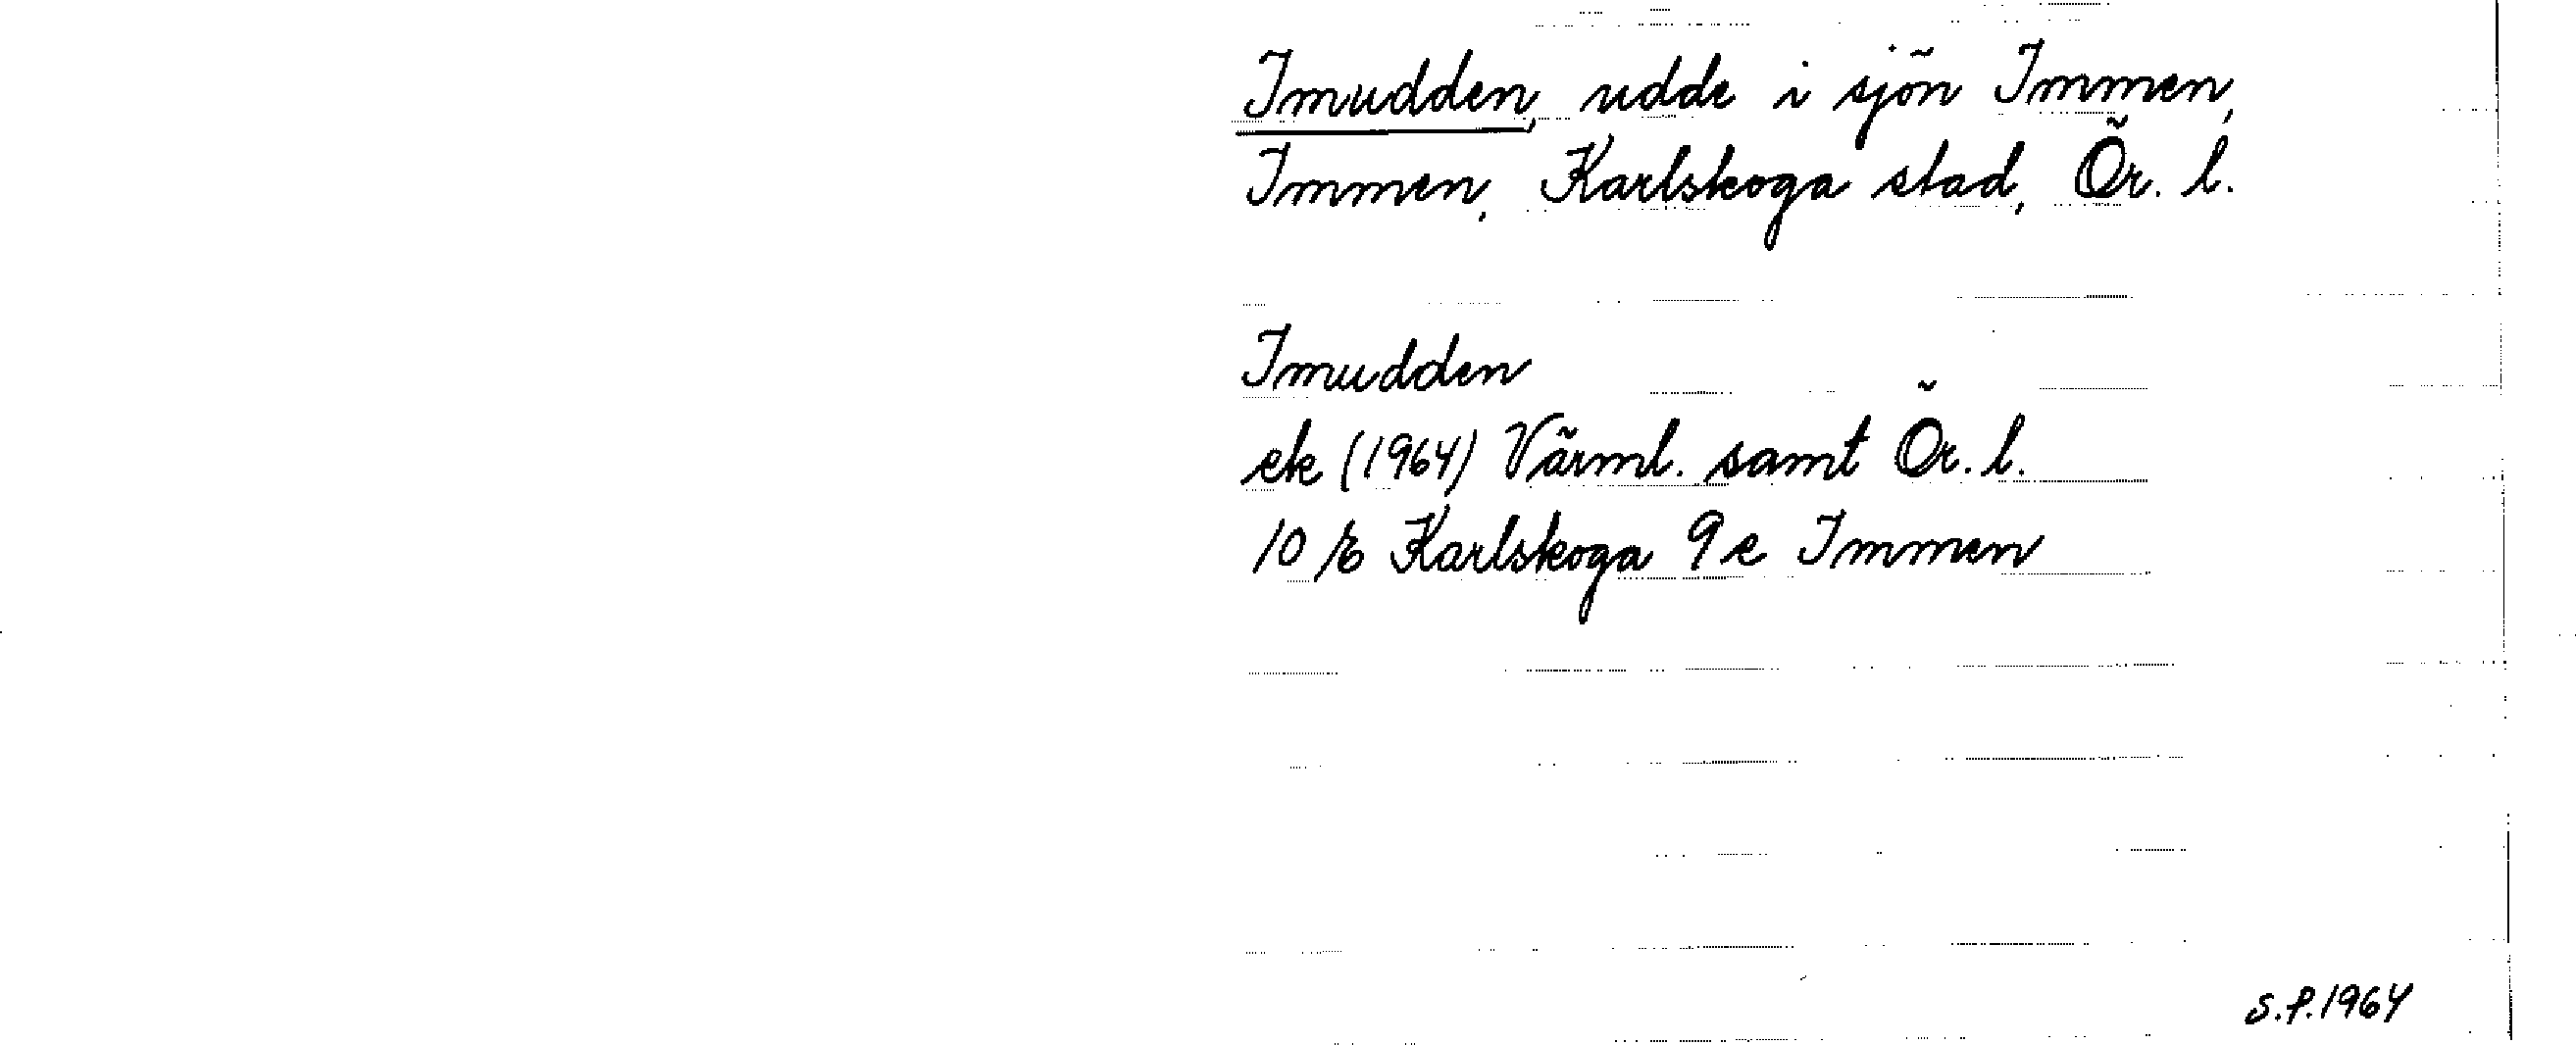 Imudden, udde i sjön Immen,
Immen, Karlskoga stad, Ör. l.
Imudden
ek (1964) Värml. samt Ör. l.
Karlskoga 9e Immen
S.P. 1964